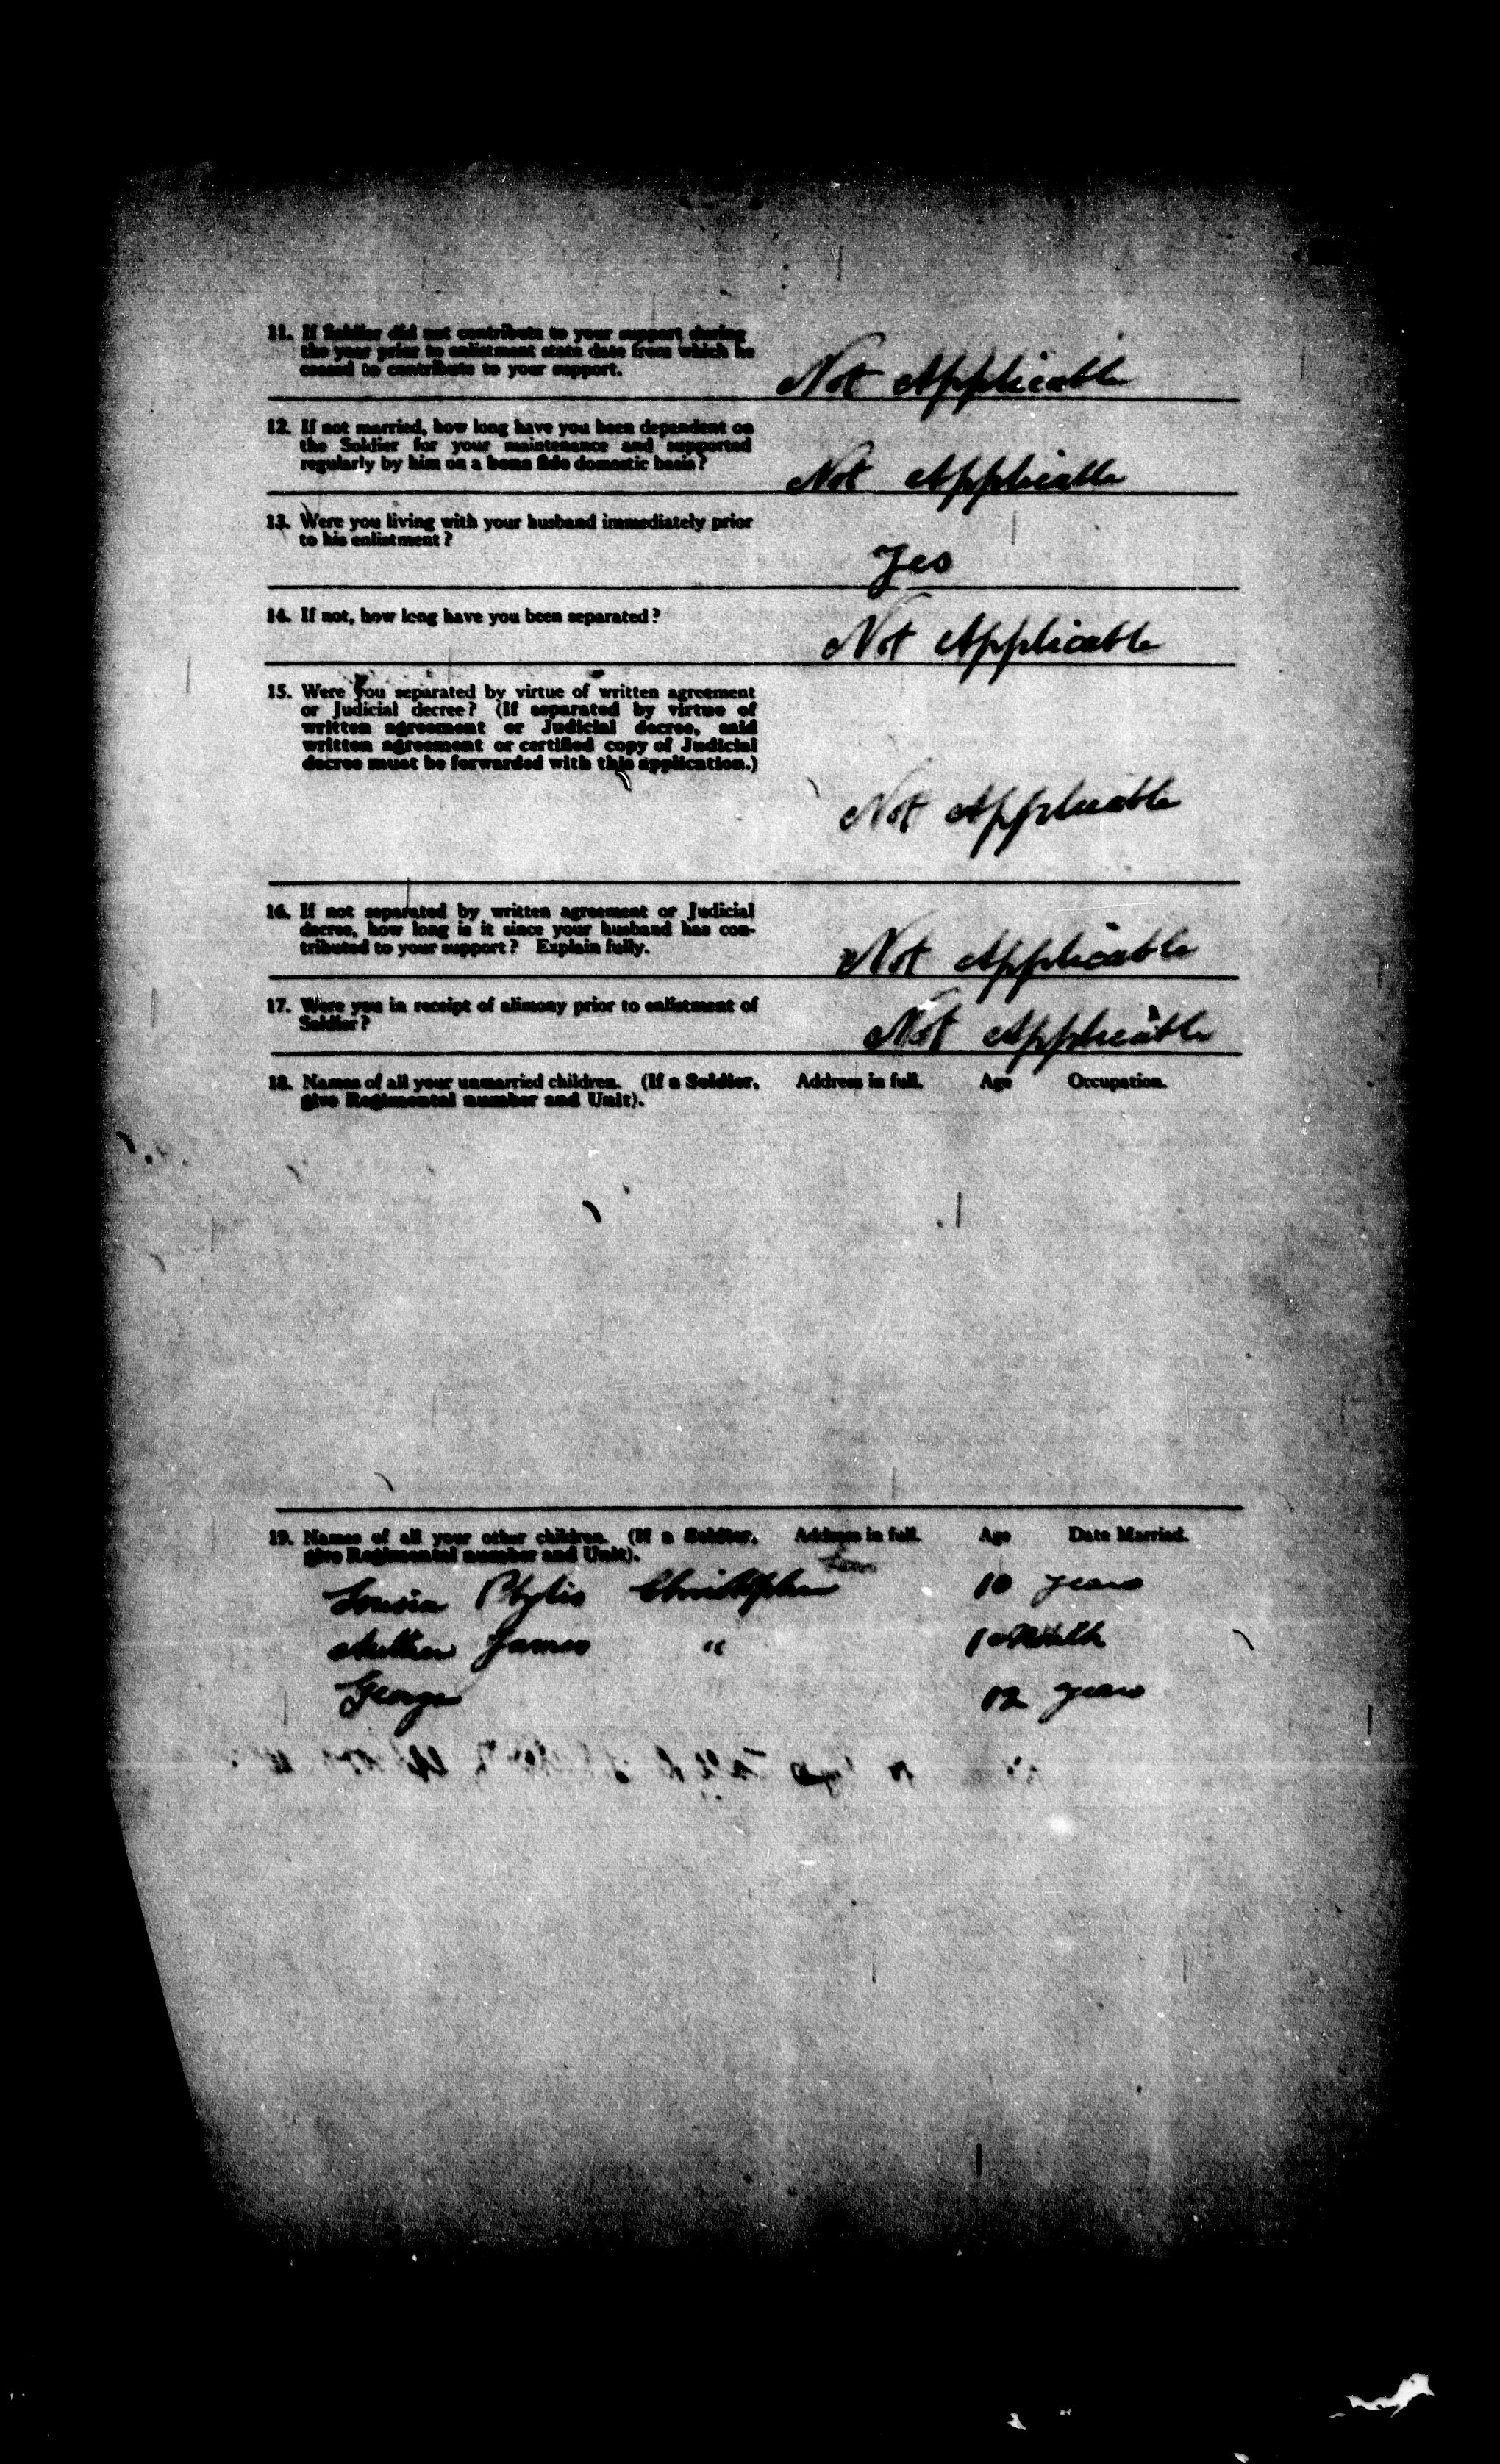 11. If Soldier did not contribute to your support during
the year prior to enlistment state date from which he
ceased to contribute to your support.
Not Applicable
12. If not married, how long have you been dependent on
the Soldier for your maintenance and supported
regularly by him on a bona fide domestic basis?
Not Applicable
13. Were you living with your husband immediately prior
to his enlistment?
Yes
14. If not, how long have you been separated?
Not Applicable
15. Were you separated by virtue of written agreement
or Judicial decree? (If separated by virtue of
written agreement or Judicial decree, said
written agreement or certified copy of Judicial
decree must be forwarded with this application.)
Not Applicable
16. If not separated by written agreement or Judicial
decree, how long is it since your husband has con-
tributed to your support? Explain fully.
Not Applicable
17. Were you in receipt of alimony prior to enlistment of
Soldier?
Not Applicable
18. Names of all your unmarried children. (If a Soldier, Address in full. Age Occupation.
give Regimental number and Unit).
19. Names of all your other children. (If a Soldier, Address in full. Age Date Married.
give Regimental number and Unit).
Louisa Phylis Christopher 10 years
James "
George 12 years